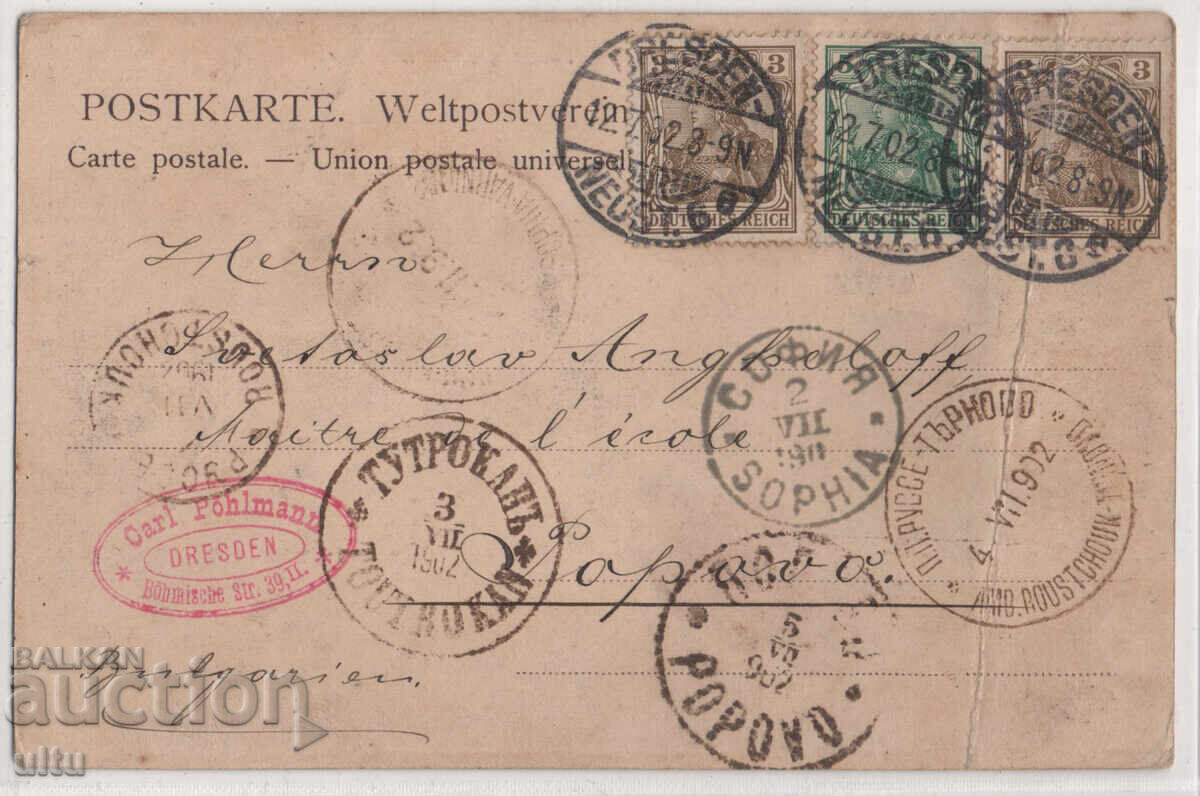 POSTKARTE. Weltpostverein
Carte postale. — Union postale universell
3
DEUTSCHES REICH
DEUTSCHES REICH
3
DEUTSCHES REICH
DRESDEN-
12.7.02.8-9N
NEUST.6
DRESD
12.7.02.8
DRESDEN
02.8-9N
Herrn
Svetoslav Angheloff,
Maître de l'école
Popovo.
Bulgarien.
ROUSTCHOUK
VII
СОФИЯ
2
VII
190
SOPHIA
П.П.РУССЕ-ТЪРНОВО
4. VII.902
AMB.ROUSTCHOUK-
* ТУТРОКАНЪ *
3
VII
1902
TOUTROKAN
ПОП
5
VII
902
POPOVO
Carl Pöhlmann
* DRESDEN *
Böhmische Str. 39, II.
BALKAN
auction
ultu